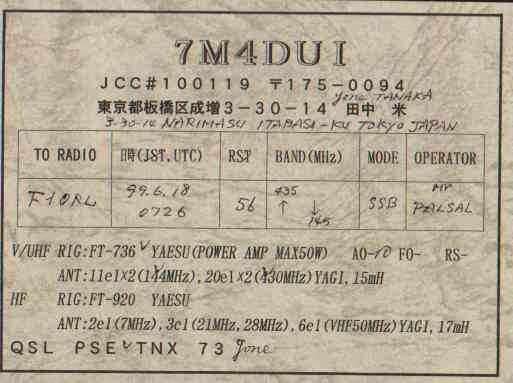 7M4DUI
JCC#100119 〒175-0094
Yone TANAKA
東京都板橋区成増3-30-14 田中 米
3-30-14 NARIMASU ITABASI-KU TOKYO JAPAN
TO RADIO 日時(JST,UTC) RST BAND(MHz) MODE OPERATOR
F1ORL 99.6.18 0726 56 435 ↑ ↓ 145 SSB Mr PALSAL
V/UHF RIG:FT-736 ✓ YAESU(POWER AMP MAX50W) AO-10 FO- RS-
ANT:11el×2(144MHz),20el×2(430MHz)YAGI,15mH
HF RIG:FT-920 YAESU
ANT:2el(7MHz),3cl(21MHz,28MHz),6el(VHF50MHz)YAGI,17mH
QSL PSE ✓ TNX 73 Yone